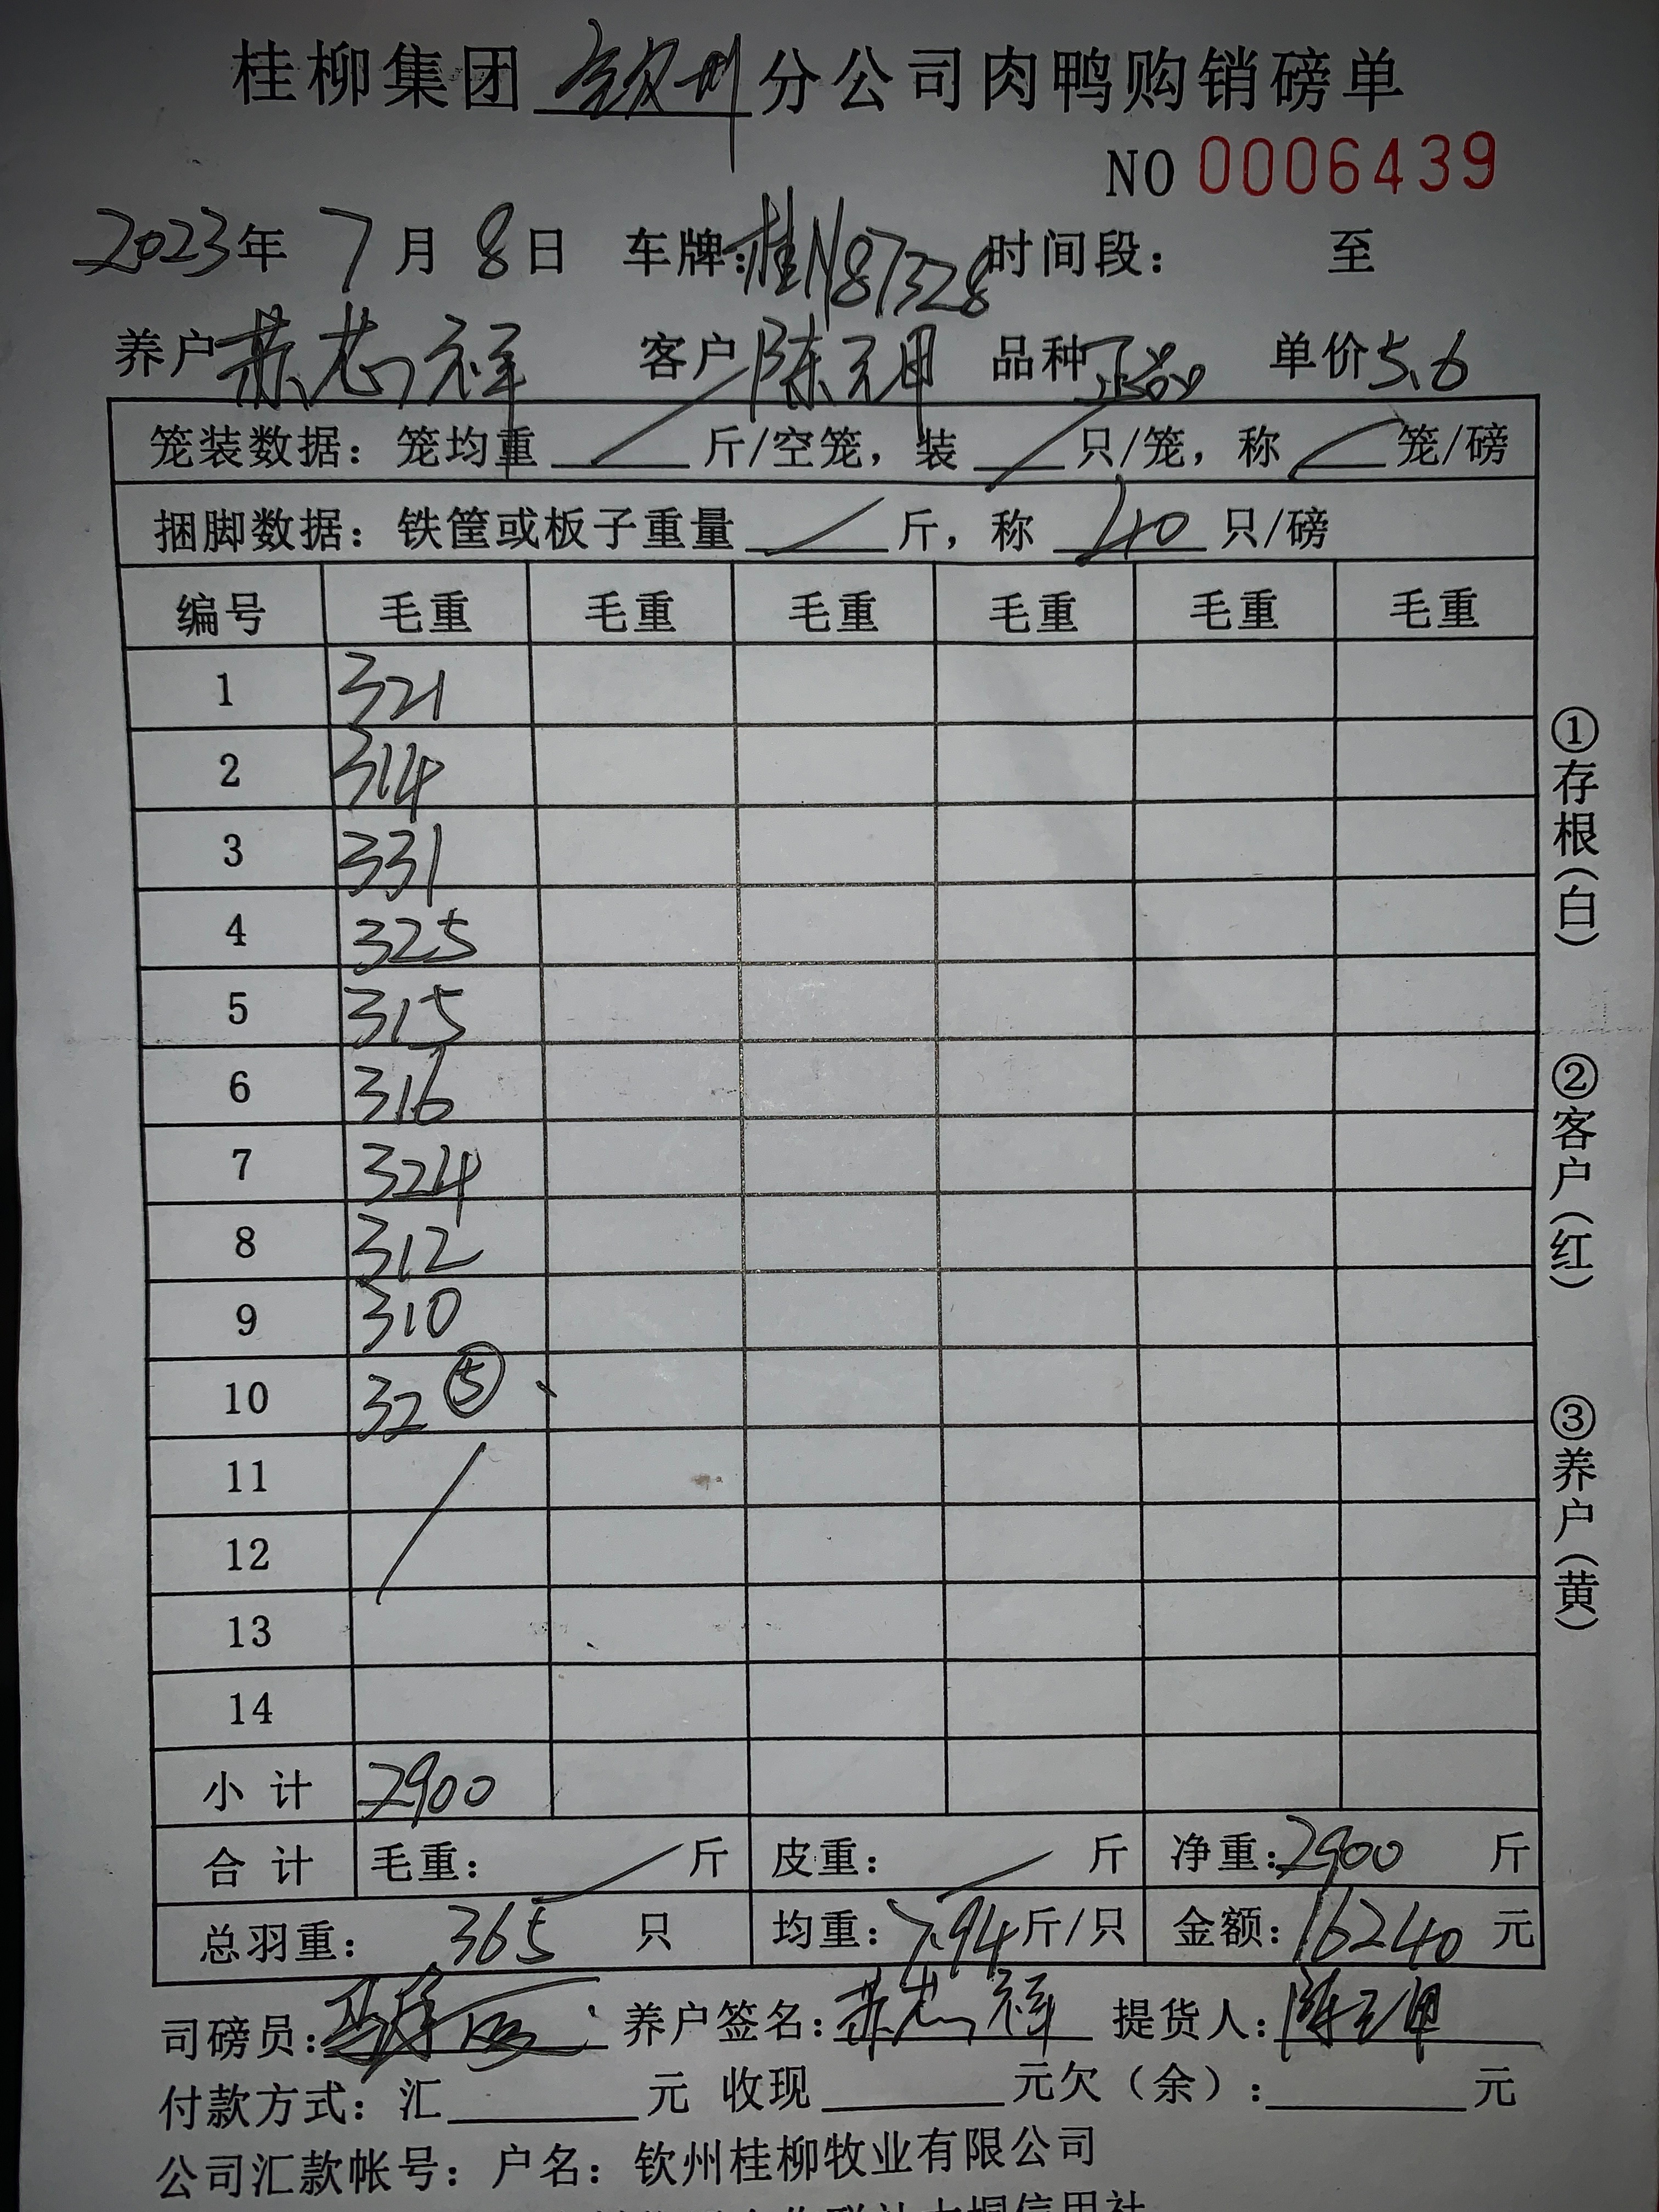 桂柳集团 钦州 分公司肉鸭购销磅单
NO 0006439
2023年 7月 8日 车牌:桂N87328 时间段: 至
养户 苏芯祥 客户 陈 品种 正品 单价5.6
笼装数据: 笼均重 斤/空笼, 装 只/笼, 称 笼/磅
捆脚数据: 铁筐或板子重量 斤, 称 40 只/磅
编号 毛重 毛重 毛重 毛重 毛重 毛重
1 321
2 314
3 331
4 325
5 315
6 316
7 324
8 312
9 310
10 32 ⑤
11
12
13
14
小计 2900
合计 毛重: 斤 皮重: 斤 净重:2900 斤
总羽重: 365 只 均重:7.94斤/只 金额:16240 元
司磅员: 养户签名:苏芯祥 提货人:陈
付款方式: 汇 元 收现 元欠(余): 元
公司汇款帐号: 户名: 钦州桂柳牧业有限公司
①存根(白)
②客户(红)
③养户(黄)